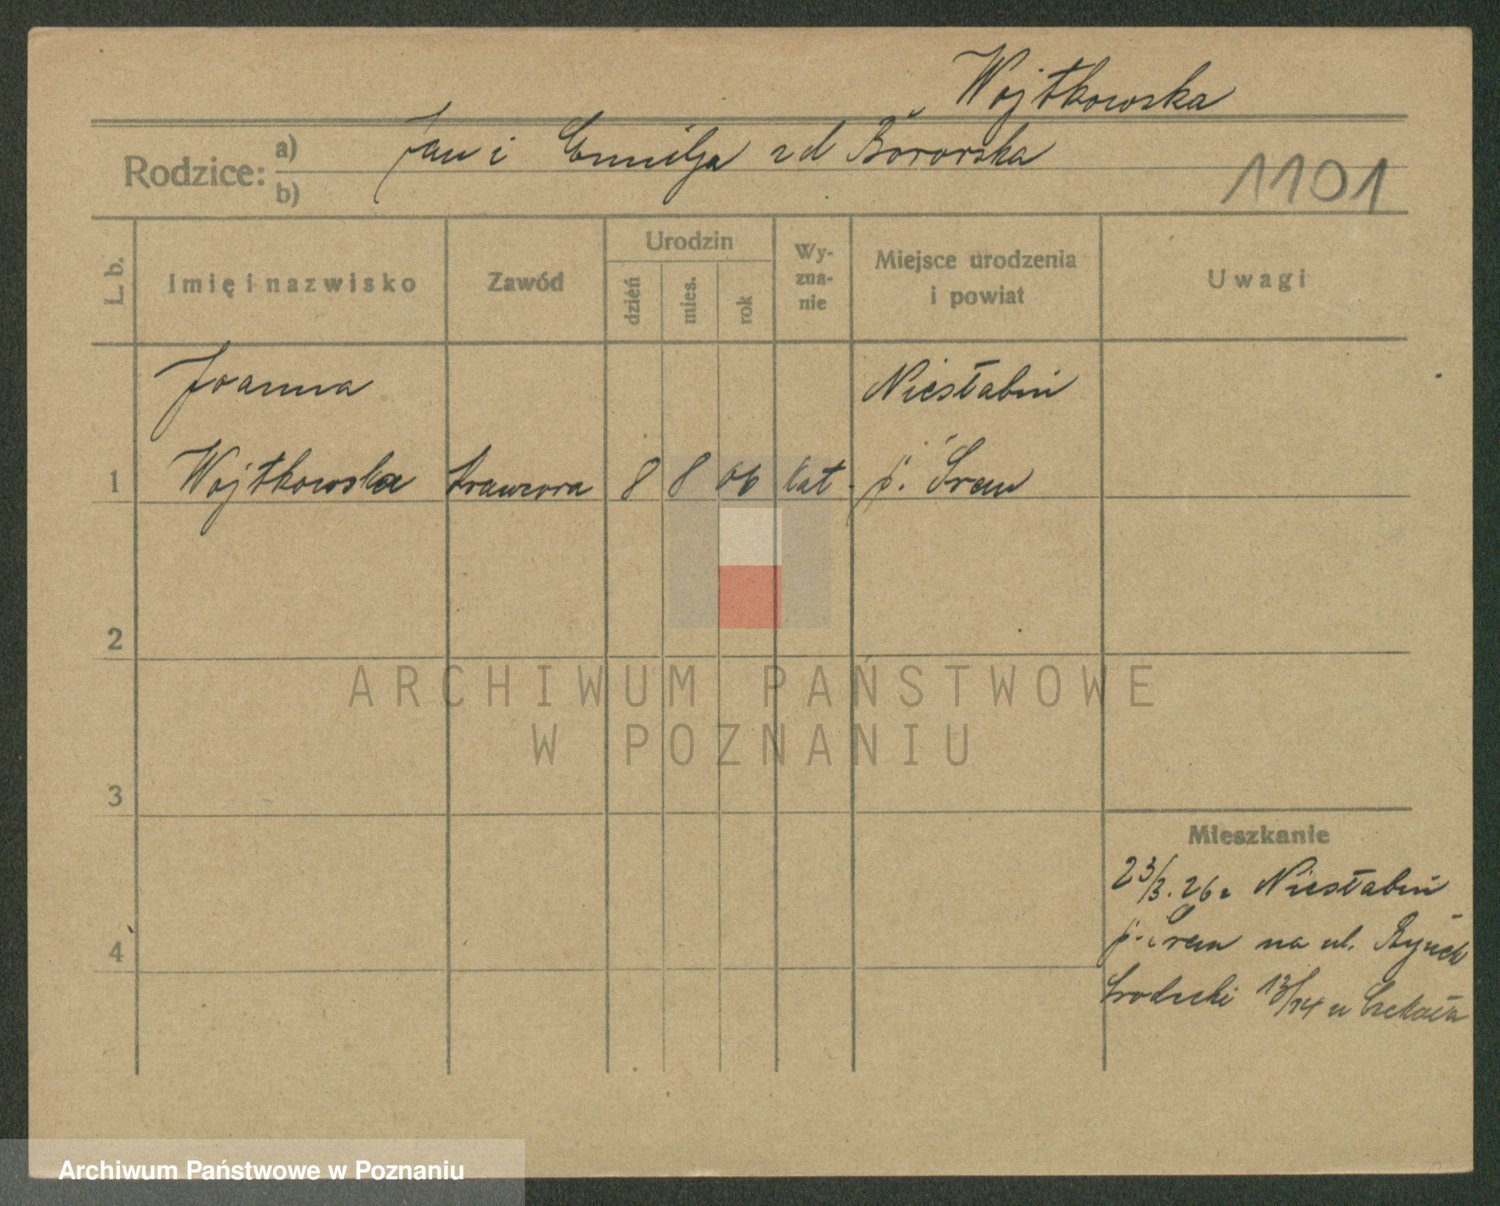 Wojtkowska
Rodzice: a) Jan i Emilja zd
b)
1101
L. b.
Imię i nazwisko
Zawód
Urodzin
dzień
mies.
rok
Wy-
zna-
nie
Miejsce urodzenia
i powiat
Uwagi
Joanna
Niesłabin
1 Wojtkowska krawcowa 8 8 06 kat. p. Śrem
2
3
4
ARCHIWUM PAŃSTWOWE
W POZNANIU
Mieszkanie
23/3.26r Niesłabin
p. Śrem na ul. Rynek
Śródecki 13/14 u
Archiwum Państwowe w Poznaniu